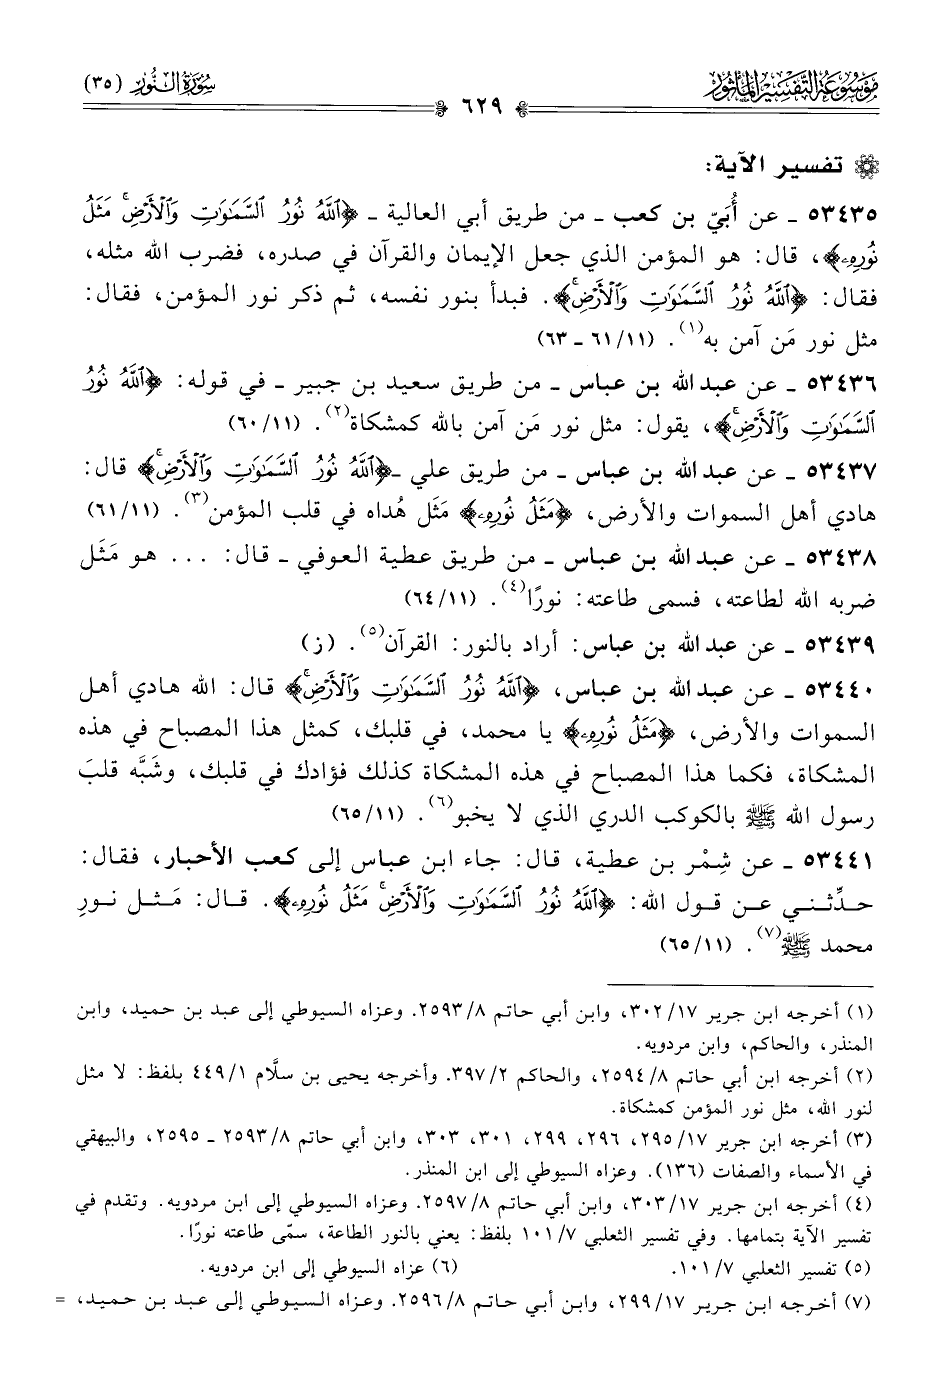 مَوْسُوعَة التَّفْسِيْر المَأْثُور
سُورَةُ النُّور (٣٥)
٦٢٩
تفسير الآية:
٥٣٤٣٥ ـ عن أُبَيّ بن كعب ـ من طريق أبي العالية ـ ﴿ٱللَّهُ نُورُ ٱلسَّمَٰوَٰتِ وَٱلْأَرْضِۚ مَثَلُ
نُورِهِۦ﴾، قال: هو المؤمن الذي جعل الإيمان والقرآن في صدره، فضرب الله مثله،
فقال: ﴿ٱللَّهُ نُورُ ٱلسَّمَٰوَٰتِ وَٱلْأَرْضِۚ﴾. فبدأ بنور نفسه، ثم ذكر نور المؤمن، فقال:
مثل نور مَن آمن به(١). (١١/ ٦١ ـ ٦٣)
٥٣٤٣٦ ـ عن عبد الله بن عباس ـ من طريق سعيد بن جبير ـ في قوله: ﴿ٱللَّهُ نُورُ
ٱلسَّمَٰوَٰتِ وَٱلْأَرْضِۚ﴾، يقول: مثل نور مَن آمن بالله كمشكاة(٢). (١١/ ٦٠)
٥٣٤٣٧ ـ عن عبد الله بن عباس ـ من طريق علي ـ ﴿ٱللَّهُ نُورُ ٱلسَّمَٰوَٰتِ وَٱلْأَرْضِۚ﴾ قال:
هادي أهل السموات والأرض، ﴿مَثَلُ نُورِهِۦ﴾ مَثَل هُداه في قلب المؤمن(٣). (١١/ ٦١)
٥٣٤٣٨ ـ عن عبد الله بن عباس ـ من طريق عطية العوفي ـ قال: ... هو مَثَل
ضربه الله لطاعته، فسمى طاعته: نورًا(٤). (١١/ ٦٤)
٥٣٤٣٩ ـ عن عبد الله بن عباس: أراد بالنور: القرآن(٥). (ز)
٥٣٤٤٠ ـ عن عبد الله بن عباس، ﴿ٱللَّهُ نُورُ ٱلسَّمَٰوَٰتِ وَٱلْأَرْضِۚ﴾ قال: الله هادي أهل
السموات والأرض، ﴿مَثَلُ نُورِهِۦ﴾ يا محمد، في قلبك، كمثل هذا المصباح في هذه
المشكاة، فكما هذا المصباح في هذه المشكاة كذلك فؤادك في قلبك، وشبَّه قلبَ
رسول الله ﷺ بالكوكب الدري الذي لا يخبو(٦). (١١/ ٦٥)
٥٣٤٤١ ـ عن شِمْر بن عطية، قال: جاء ابن عباس إلى كعب الأحبار، فقال:
حدِّثني عن قول الله: ﴿ٱللَّهُ نُورُ ٱلسَّمَٰوَٰتِ وَٱلْأَرْضِۚ مَثَلُ نُورِهِۦ﴾. قال: مَثل نورِ
محمد ﷺ(٧). (١١/ ٦٥)
(١) أخرجه ابن جرير ١٧/ ٣٠٢، وابن أبي حاتم ٨/ ٢٥٩٣. وعزاه السيوطي إلى عبد بن حميد، وابن
المنذر، والحاكم، وابن مردويه.
(٢) أخرجه ابن أبي حاتم ٨/ ٢٥٩٤، والحاكم ٢/ ٣٩٧. وأخرجه يحيى بن سلَّام ١/ ٤٤٩ بلفظ: لا مثل
لنور الله، مثل نور المؤمن كمشكاة.
(٣) أخرجه ابن جرير ١٧/ ٢٩٥، ٢٩٦، ٢٩٩، ٣٠١، ٣٠٣، وابن أبي حاتم ٨/ ٢٥٩٣ ـ ٢٥٩٥، والبيهقي
في الأسماء والصفات (١٣٦). وعزاه السيوطي إلى ابن المنذر.
(٤) أخرجه ابن جرير ١٧/ ٣٠٣، وابن أبي حاتم ٨/ ٢٥٩٧. وعزاه السيوطي إلى ابن مردويه. وتقدم في
تفسير الآية بتمامها. وفي تفسير الثعلبي ٧/ ١٠١ بلفظ: يعني بالنور الطاعة، سمّى طاعته نورًا.
(٥) تفسير الثعلبي ٧/ ١٠١. (٦) عزاه السيوطي إلى ابن مردويه.
(٧) أخرجه ابن جرير ١٧/ ٢٩٩، وابن أبي حاتم ٨/ ٢٥٩٦. وعزاه السيوطي إلى عبد بن حميد، =